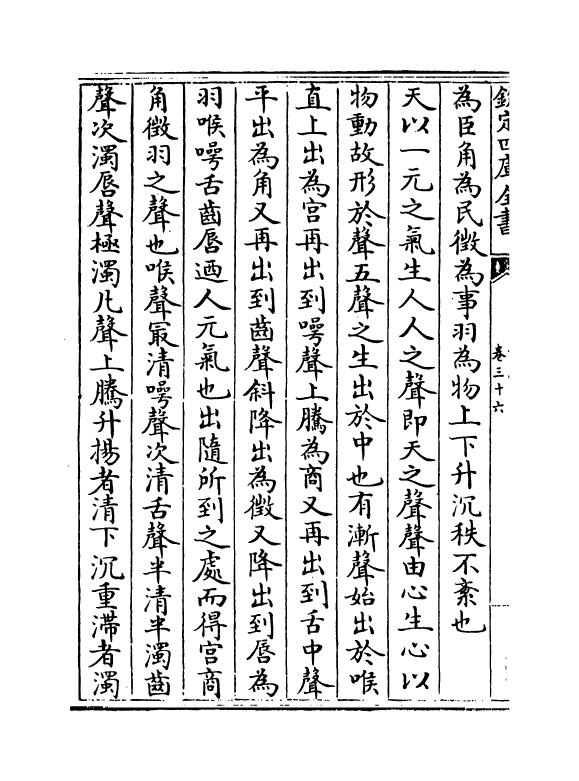 欽定四庫全書
卷三十六
為臣角為民徵為事羽為物上下升沉秩不紊也
天以一元之氣生人人之聲即天之聲聲由心生心以
物動故形於聲五聲之生出於中也有漸聲始出於喉
直上出為宫再出到噚聲上騰為商又再出到舌中聲
平出為角又再出到齒聲斜降出為徵又降出到唇為
羽喉噚舌齒唇迺人元氣也出隨所到之處而得宫商
角徵羽之聲也喉聲冣清噚聲次清舌聲半清半濁齒
聲次濁唇聲極濁凡聲上騰升揚者清下沉重滯者濁